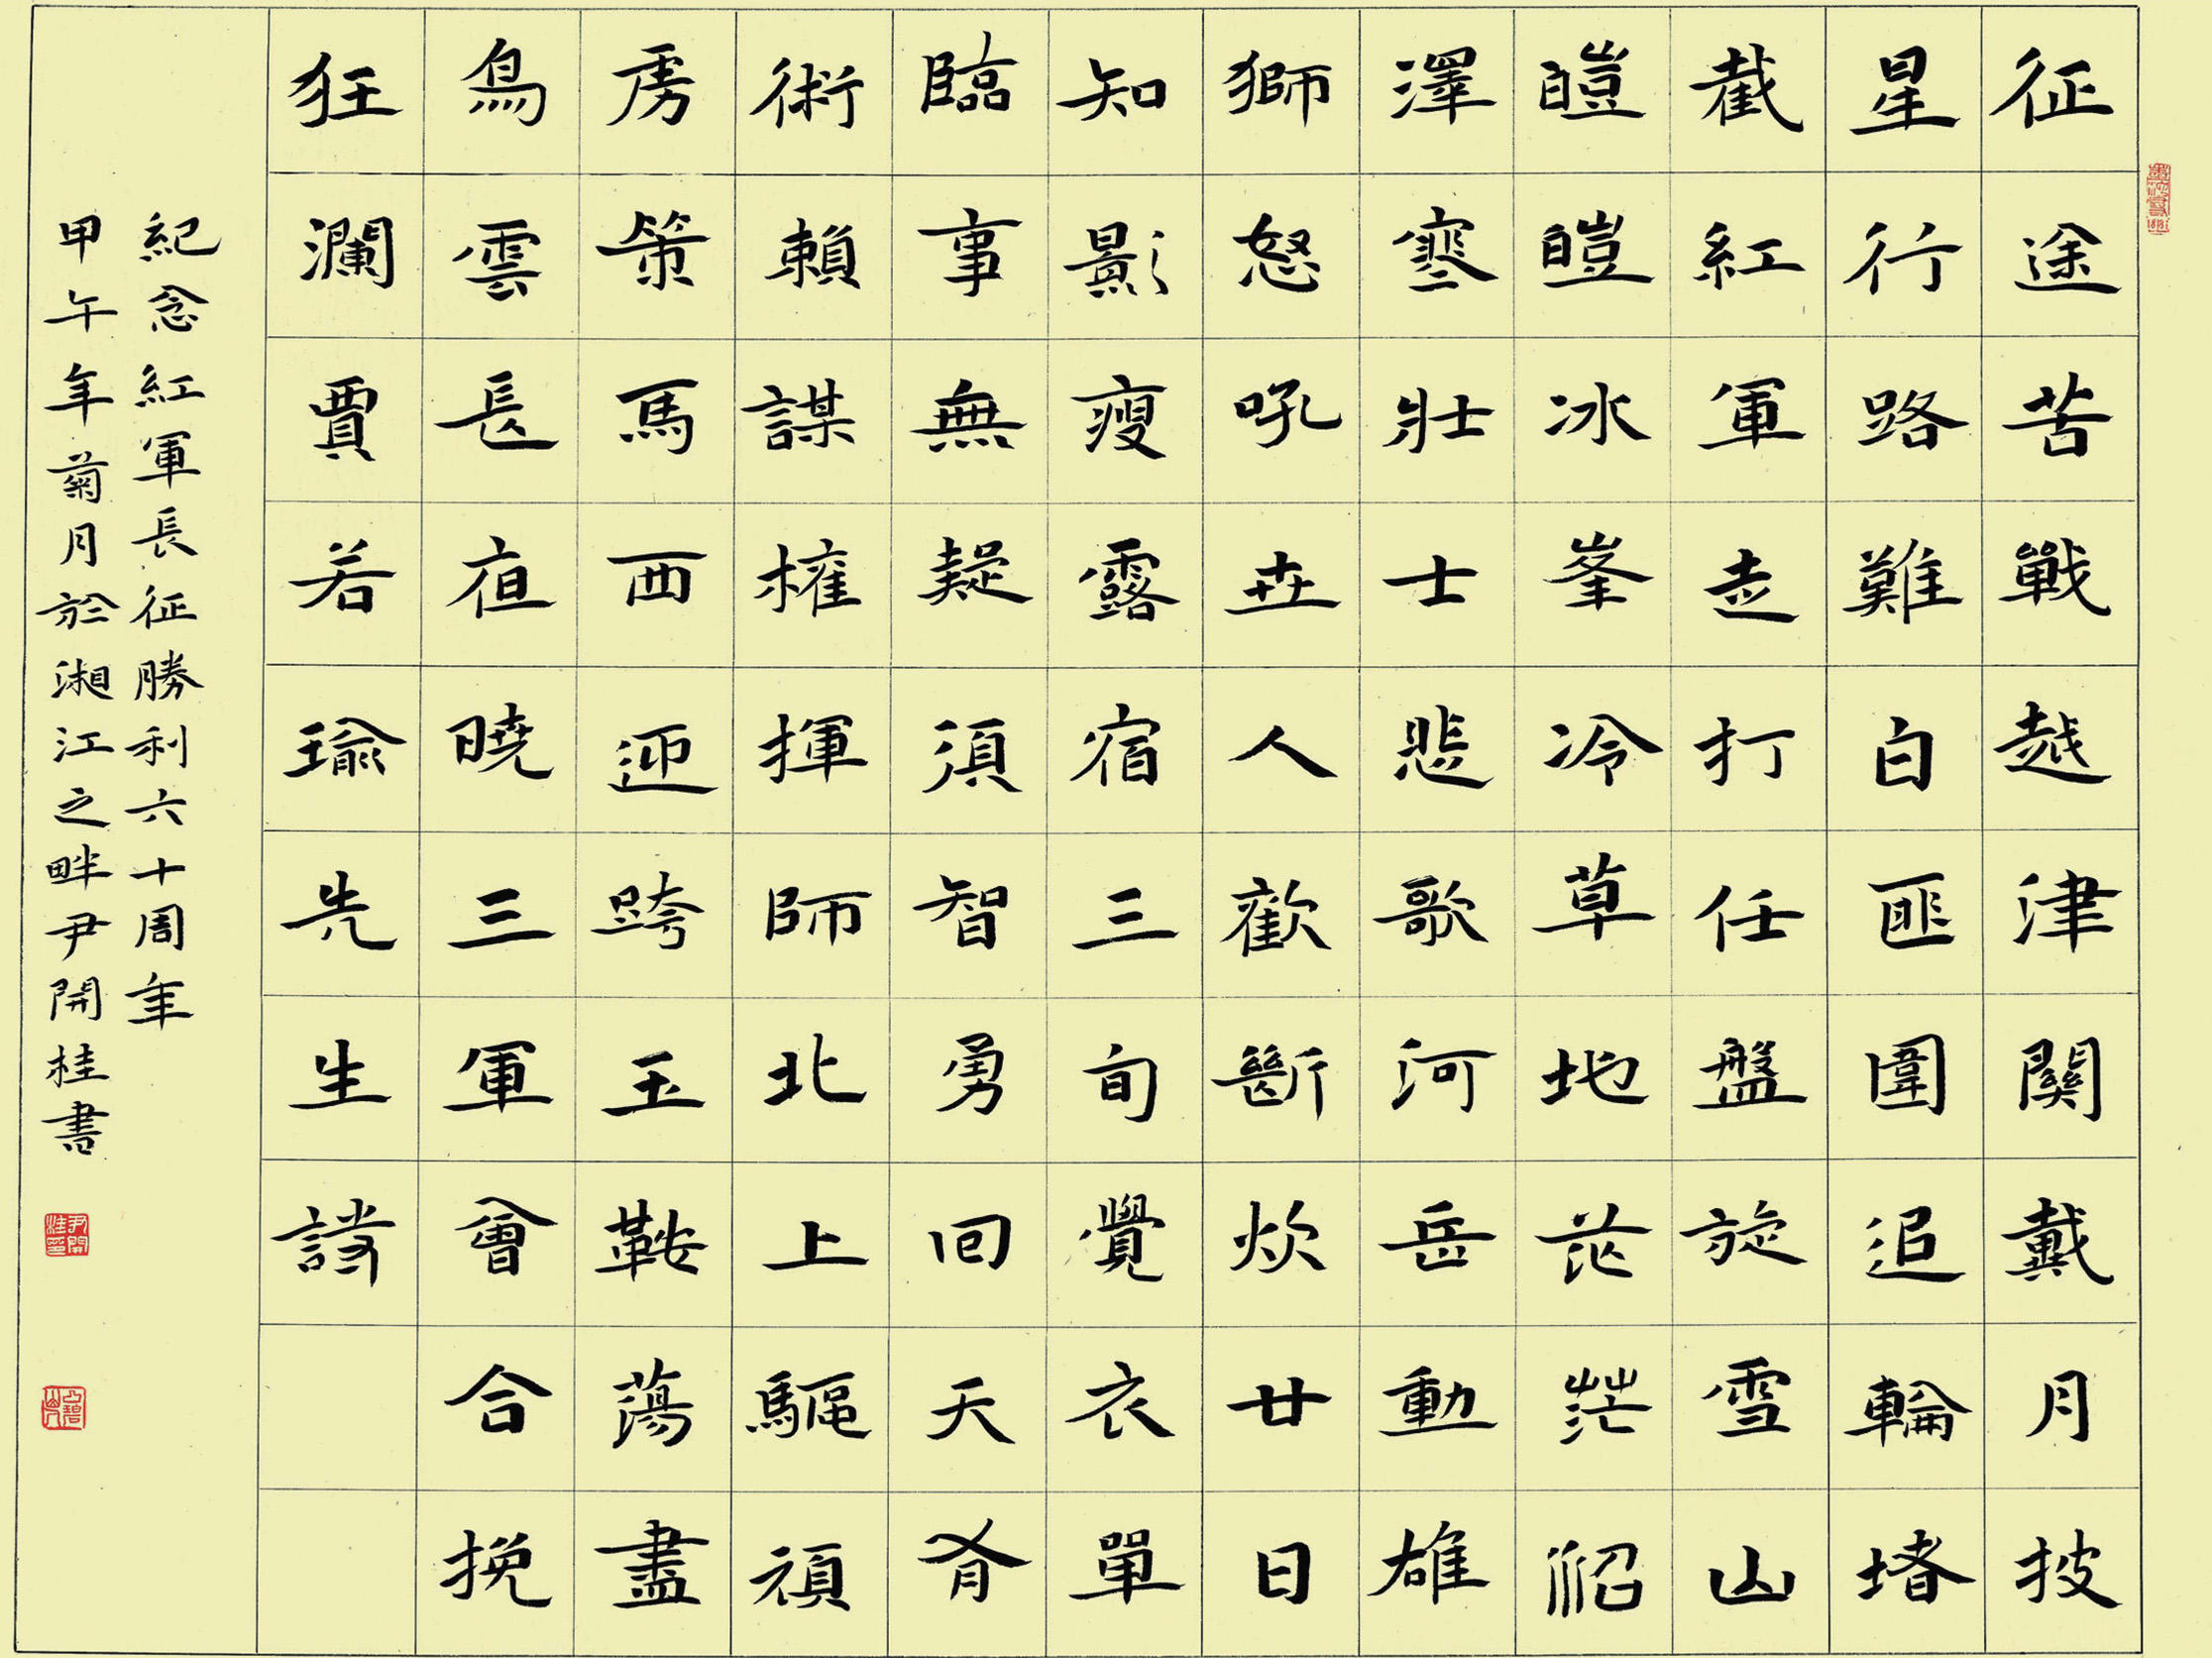 征途苦戰越津關戴月披
星行路難白匪圍追輪堵
截紅軍走打任盤旋雪山
皚皚冰峯冷草地茫茫沼
澤寒壯士悲歌河岳動雄
獅怒吼世人歡斷炊廿日
知影瘦露宿三旬覺衣單
臨事無疑須智勇回天有
術賴謀權揮師北上驅頑
虜策馬西迎跨玉鞍蕩盡
烏雲長夜曉三軍會合挽
狂瀾賈若瑜先生詩
紀念紅軍長征勝利六十周年
甲午年菊月於湘江之畔尹開桂書